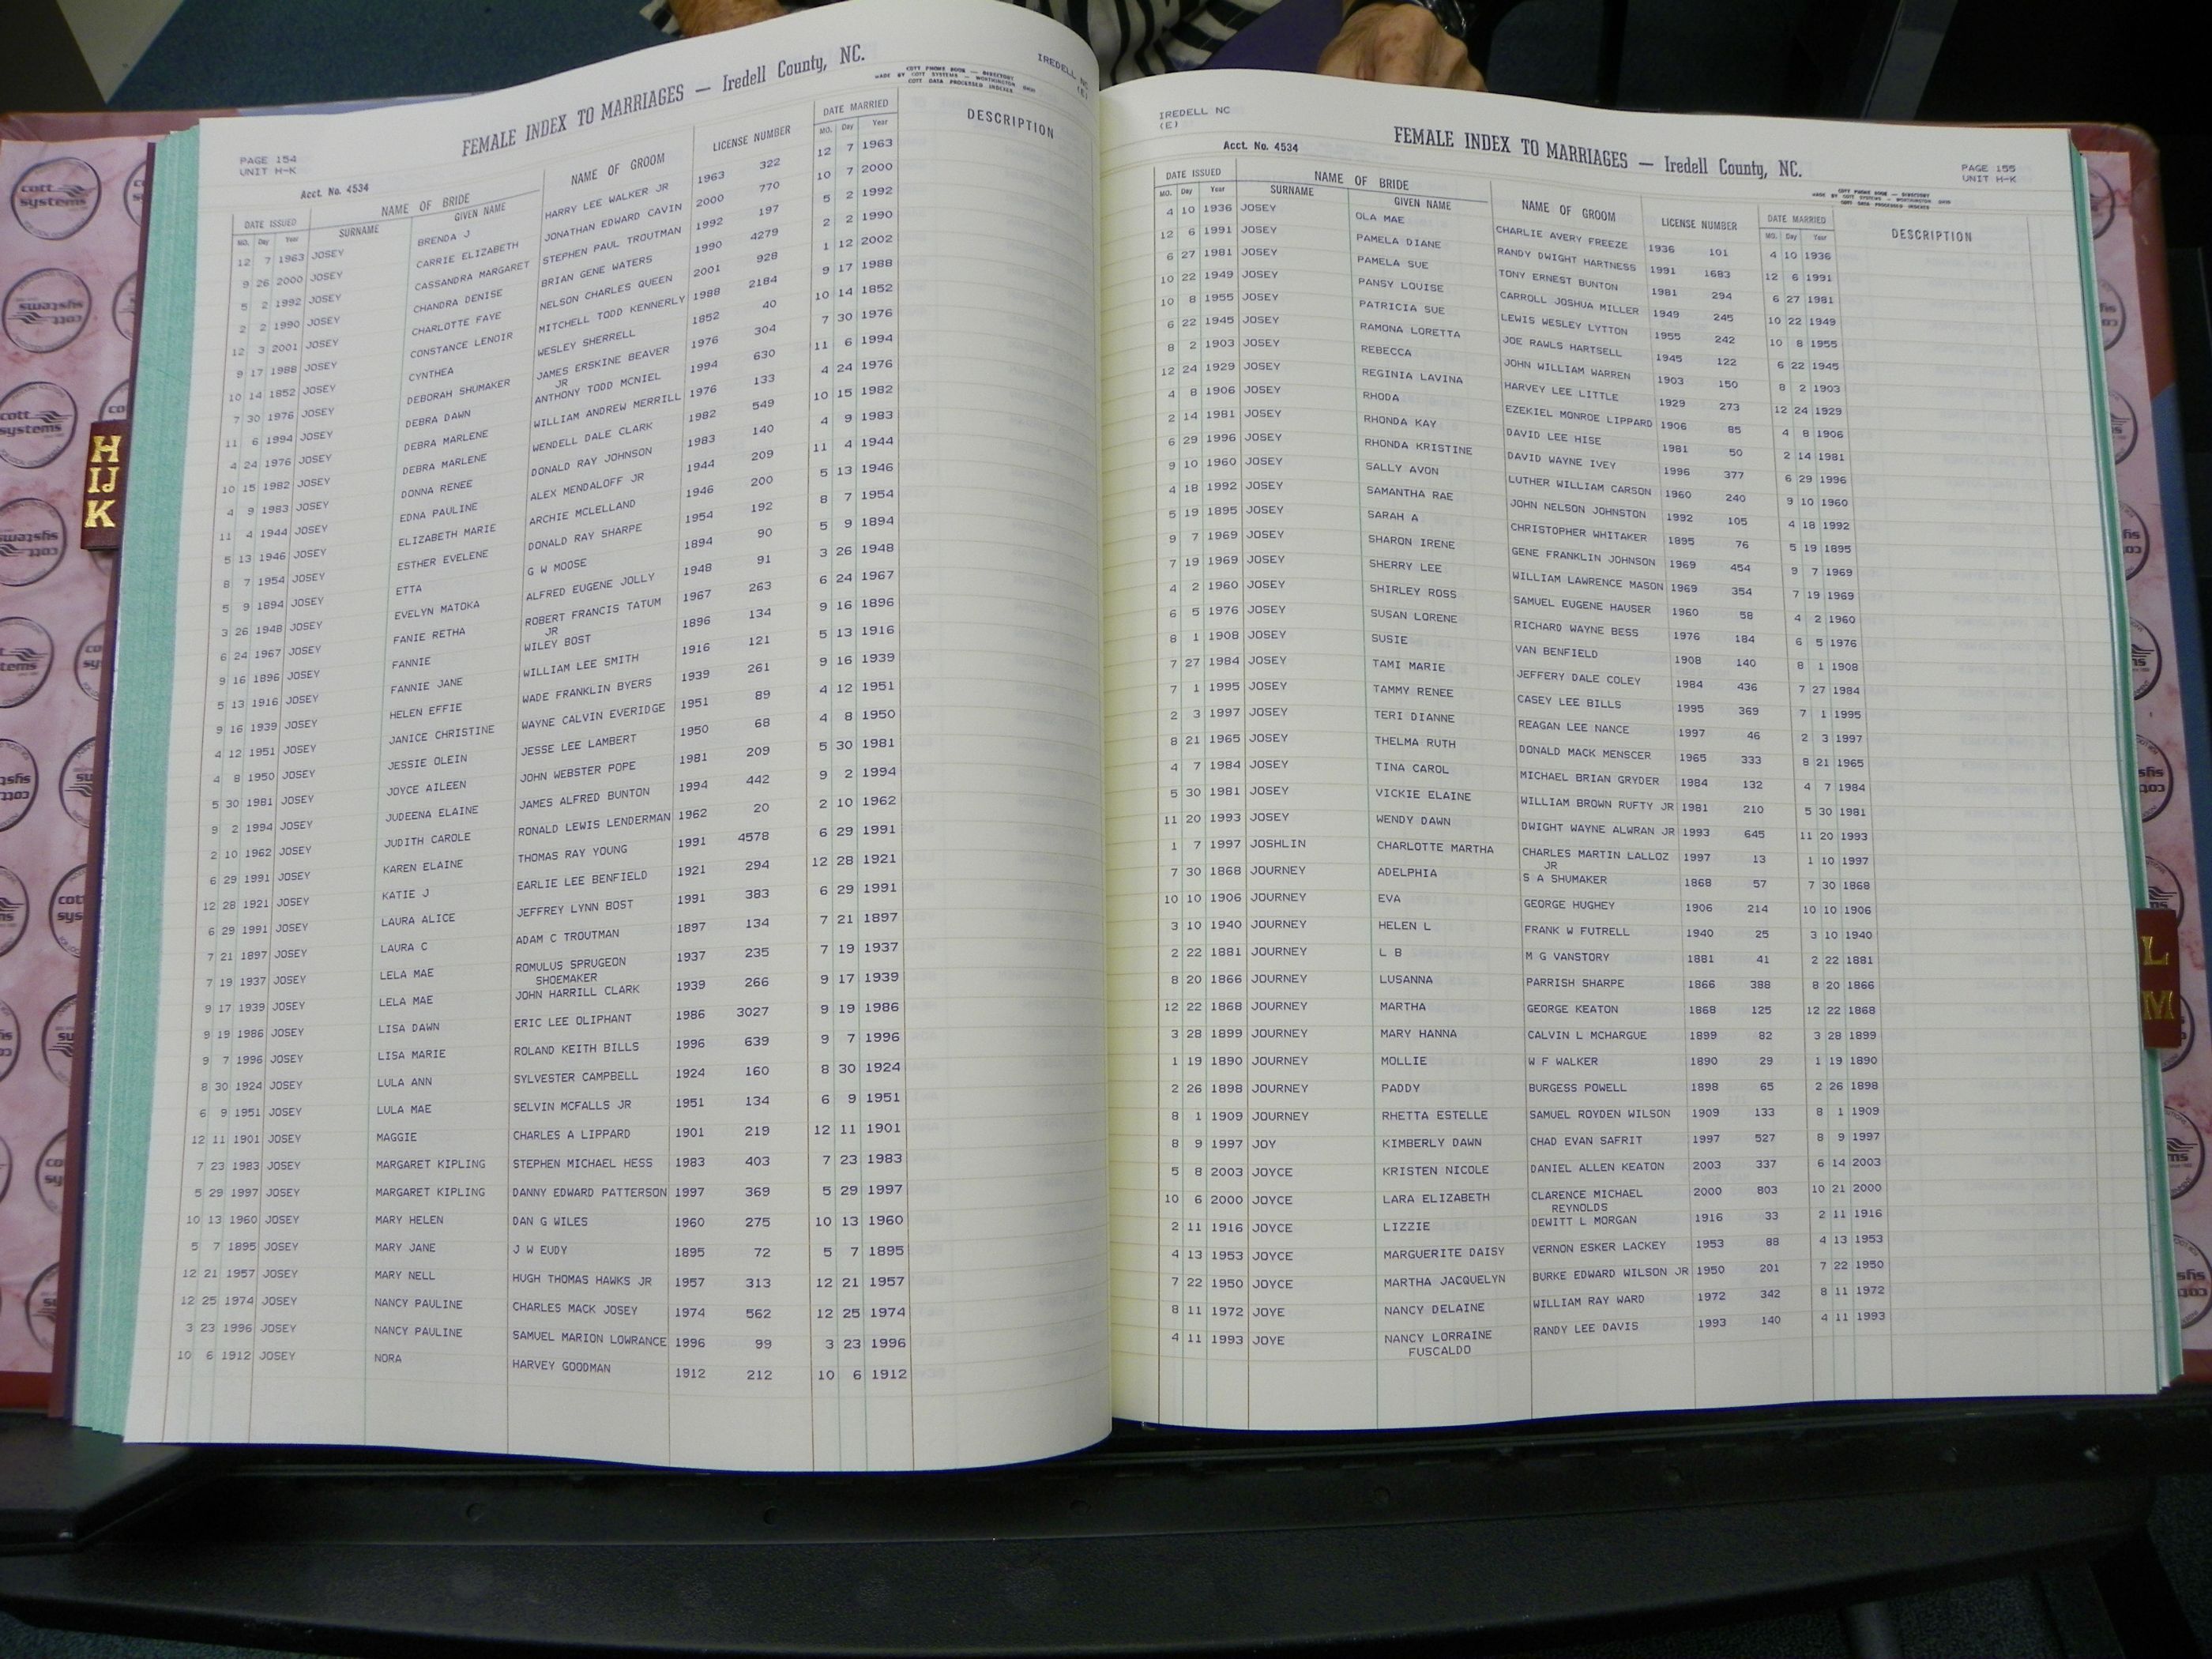 PAGE 154
UNIT H-K
FEMALE INDEX TO MARRIAGES — Iredell County, NC.
COTT PHONE BOOK — DIRECTORY
MADE BY COTT SYSTEMS — WORTHINGTON OHIO
COTT DATA PROCESSED INDEXES
IREDELL NC
(E)
Acct. No. 4534
DATE ISSUED NAME OF BRIDE NAME OF GROOM LICENSE NUMBER DATE MARRIED DESCRIPTION
MO. Day Year SURNAME GIVEN NAME MO. Day Year
12 7 1963 JOSEY BRENDA J HARRY LEE WALKER JR 1963 322 12 7 1963
9 26 2000 JOSEY CARRIE ELIZABETH JONATHAN EDWARD CAVIN 2000 770 10 7 2000
5 2 1992 JOSEY CASSANDRA MARGARET STEPHEN PAUL TROUTMAN 1992 197 5 2 1992
2 2 1990 JOSEY CHANDRA DENISE BRIAN GENE WATERS 1990 4279 2 2 1990
12 3 2001 JOSEY CHARLOTTE FAYE NELSON CHARLES QUEEN 2001 928 1 12 2002
9 17 1988 JOSEY CONSTANCE LENOIR MITCHELL TODD KENNERLY 1988 2184 9 17 1988
10 14 1852 JOSEY CYNTHEA WESLEY SHERRELL 1852 40 10 14 1852
7 30 1976 JOSEY DEBORAH SHUMAKER JAMES ERSKINE BEAVER 1976 304 7 30 1976
JR
11 6 1994 JOSEY DEBRA DAWN ANTHONY TODD MCNIEL 1994 630 11 6 1994
4 24 1976 JOSEY DEBRA MARLENE WILLIAM ANDREW MERRILL 1976 133 4 24 1976
10 15 1982 JOSEY DEBRA MARLENE WENDELL DALE CLARK 1982 549 10 15 1982
4 9 1983 JOSEY DONNA RENEE DONALD RAY JOHNSON 1983 140 4 9 1983
11 4 1944 JOSEY EDNA PAULINE ALEX MENDALOFF JR 1944 209 11 4 1944
5 13 1946 JOSEY ELIZABETH MARIE ARCHIE MCLELLAND 1946 200 5 13 1946
8 7 1954 JOSEY ESTHER EVELENE DONALD RAY SHARPE 1954 192 8 7 1954
5 9 1894 JOSEY ETTA G W MOOSE 1894 90 5 9 1894
3 26 1948 JOSEY EVELYN MATOKA ALFRED EUGENE JOLLY 1948 91 3 26 1948
6 24 1967 JOSEY FANIE RETHA ROBERT FRANCIS TATUM 1967 263 6 24 1967
JR
9 16 1896 JOSEY FANNIE WILEY BOST 1896 134 9 16 1896
5 13 1916 JOSEY FANNIE JANE WILLIAM LEE SMITH 1916 121 5 13 1916
9 16 1939 JOSEY HELEN EFFIE WADE FRANKLIN BYERS 1939 261 9 16 1939
4 12 1951 JOSEY JANICE CHRISTINE WAYNE CALVIN EVERIDGE 1951 89 4 12 1951
4 8 1950 JOSEY JESSIE OLEIN JESSE LEE LAMBERT 1950 68 4 8 1950
5 30 1981 JOSEY JOYCE AILEEN JOHN WEBSTER POPE 1981 209 5 30 1981
9 2 1994 JOSEY JUDEENA ELAINE JAMES ALFRED BUNTON 1994 442 9 2 1994
2 10 1962 JOSEY JUDITH CAROLE RONALD LEWIS LENDERMAN 1962 20 2 10 1962
6 29 1991 JOSEY KAREN ELAINE THOMAS RAY YOUNG 1991 4578 6 29 1991
12 28 1921 JOSEY KATIE J EARLIE LEE BENFIELD 1921 294 12 28 1921
6 29 1991 JOSEY LAURA ALICE JEFFREY LYNN BOST 1991 383 6 29 1991
7 21 1897 JOSEY LAURA C ADAM C TROUTMAN 1897 134 7 21 1897
7 19 1937 JOSEY LELA MAE ROMULUS SPRUGEON 1937 235 7 19 1937
SHOEMAKER
9 17 1939 JOSEY LELA MAE JOHN HARRILL CLARK 1939 266 9 17 1939
9 19 1986 JOSEY LISA DAWN ERIC LEE OLIPHANT 1986 3027 9 19 1986
9 7 1996 JOSEY LISA MARIE ROLAND KEITH BILLS 1996 639 9 7 1996
8 30 1924 JOSEY LULA ANN SYLVESTER CAMPBELL 1924 160 8 30 1924
6 9 1951 JOSEY LULA MAE SELVIN MCFALLS JR 1951 134 6 9 1951
12 11 1901 JOSEY MAGGIE CHARLES A LIPPARD 1901 219 12 11 1901
7 23 1983 JOSEY MARGARET KIPLING STEPHEN MICHAEL HESS 1983 403 7 23 1983
5 29 1997 JOSEY MARGARET KIPLING DANNY EDWARD PATTERSON 1997 369 5 29 1997
10 13 1960 JOSEY MARY HELEN DAN G WILES 1960 275 10 13 1960
5 7 1895 JOSEY MARY JANE J W EUDY 1895 72 5 7 1895
12 21 1957 JOSEY MARY NELL HUGH THOMAS HAWKS JR 1957 313 12 21 1957
12 25 1974 JOSEY NANCY PAULINE CHARLES MACK JOSEY 1974 562 12 25 1974
3 23 1996 JOSEY NANCY PAULINE SAMUEL MARION LOWRANCE 1996 99 3 23 1996
10 6 1912 JOSEY NORA HARVEY GOODMAN 1912 212 10 6 1912
IREDELL NC
(E)
Acct. No. 4534
FEMALE INDEX TO MARRIAGES — Iredell County, NC.
PAGE 155
UNIT H-K
COTT PHONE BOOK — DIRECTORY
MADE BY COTT SYSTEMS — WORTHINGTON OHIO
COTT DATA PROCESSED INDEXES
DATE ISSUED NAME OF BRIDE NAME OF GROOM LICENSE NUMBER DATE MARRIED DESCRIPTION
MO. Day Year SURNAME GIVEN NAME MO. Day Year
4 10 1936 JOSEY OLA MAE CHARLIE AVERY FREEZE 1936 101 4 10 1936
12 6 1991 JOSEY PAMELA DIANE RANDY DWIGHT HARTNESS 1991 1683 12 6 1991
6 27 1981 JOSEY PAMELA SUE TONY ERNEST BUNTON 1981 294 6 27 1981
10 22 1949 JOSEY PANSY LOUISE CARROLL JOSHUA MILLER 1949 245 10 22 1949
10 8 1955 JOSEY PATRICIA SUE LEWIS WESLEY LYTTON 1955 242 10 8 1955
6 22 1945 JOSEY RAMONA LORETTA JOE RAWLS HARTSELL 1945 122 6 22 1945
8 2 1903 JOSEY REBECCA JOHN WILLIAM WARREN 1903 150 8 2 1903
12 24 1929 JOSEY REGINIA LAVINA HARVEY LEE LITTLE 1929 273 12 24 1929
4 8 1906 JOSEY RHODA EZEKIEL MONROE LIPPARD 1906 85 4 8 1906
2 14 1981 JOSEY RHONDA KAY DAVID LEE HISE 1981 50 2 14 1981
6 29 1996 JOSEY RHONDA KRISTINE DAVID WAYNE IVEY 1996 377 6 29 1996
9 10 1960 JOSEY SALLY AVON LUTHER WILLIAM CARSON 1960 240 9 10 1960
4 18 1992 JOSEY SAMANTHA RAE JOHN NELSON JOHNSTON 1992 105 4 18 1992
5 19 1895 JOSEY SARAH A CHRISTOPHER WHITAKER 1895 76 5 19 1895
9 7 1969 JOSEY SHARON IRENE GENE FRANKLIN JOHNSON 1969 454 9 7 1969
7 19 1969 JOSEY SHERRY LEE WILLIAM LAWRENCE MASON 1969 354 7 19 1969
4 2 1960 JOSEY SHIRLEY ROSS SAMUEL EUGENE HAUSER 1960 58 4 2 1960
6 5 1976 JOSEY SUSAN LORENE RICHARD WAYNE BESS 1976 184 6 5 1976
8 1 1908 JOSEY SUSIE VAN BENFIELD 1908 140 8 1 1908
7 27 1984 JOSEY TAMI MARIE JEFFERY DALE COLEY 1984 436 7 27 1984
7 1 1995 JOSEY TAMMY RENEE CASEY LEE BILLS 1995 369 7 1 1995
2 3 1997 JOSEY TERI DIANNE REAGAN LEE NANCE 1997 46 2 3 1997
8 21 1965 JOSEY THELMA RUTH DONALD MACK MENSCER 1965 333 8 21 1965
4 7 1984 JOSEY TINA CAROL MICHAEL BRIAN GRYDER 1984 132 4 7 1984
5 30 1981 JOSEY VICKIE ELAINE WILLIAM BROWN RUFTY JR 1981 210 5 30 1981
11 20 1993 JOSEY WENDY DAWN DWIGHT WAYNE ALWRAN JR 1993 645 11 20 1993
1 7 1997 JOSHLIN CHARLOTTE MARTHA CHARLES MARTIN LALLOZ 1997 13 1 10 1997
JR
7 30 1868 JOURNEY ADELPHIA S A SHUMAKER 1868 57 7 30 1868
10 10 1906 JOURNEY EVA GEORGE HUGHEY 1906 214 10 10 1906
3 10 1940 JOURNEY HELEN L FRANK W FUTRELL 1940 25 3 10 1940
2 22 1881 JOURNEY L B M G VANSTORY 1881 41 2 22 1881
8 20 1866 JOURNEY LUSANNA PARRISH SHARPE 1866 388 8 20 1866
12 22 1868 JOURNEY MARTHA GEORGE KEATON 1868 125 12 22 1868
3 28 1899 JOURNEY MARY HANNA CALVIN L MCHARGUE 1899 82 3 28 1899
1 19 1890 JOURNEY MOLLIE W F WALKER 1890 29 1 19 1890
2 26 1898 JOURNEY PADDY BURGESS POWELL 1898 65 2 26 1898
8 1 1909 JOURNEY RHETTA ESTELLE SAMUEL ROYDEN WILSON 1909 133 8 1 1909
8 9 1997 JOY KIMBERLY DAWN CHAD EVAN SAFRIT 1997 527 8 9 1997
5 8 2003 JOYCE KRISTEN NICOLE DANIEL ALLEN KEATON 2003 337 6 14 2003
10 6 2000 JOYCE LARA ELIZABETH CLARENCE MICHAEL 2000 803 10 21 2000
REYNOLDS
2 11 1916 JOYCE LIZZIE DEWITT L MORGAN 1916 33 2 11 1916
4 13 1953 JOYCE MARGUERITE DAISY VERNON ESKER LACKEY 1953 88 4 13 1953
7 22 1950 JOYCE MARTHA JACQUELYN BURKE EDWARD WILSON JR 1950 201 7 22 1950
8 11 1972 JOYE NANCY DELAINE WILLIAM RAY WARD 1972 342 8 11 1972
4 11 1993 JOYE NANCY LORRAINE RANDY LEE DAVIS 1993 140 4 11 1993
FUSCALDO
H
IJ
K
L
M
cott
systems